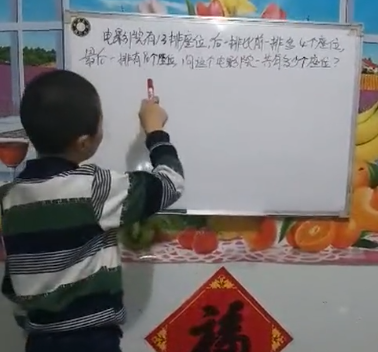 电影院有13排座位,后一排比前一排多4个座位,
最后一排有个座位,问这个电影院一共有多少个座位?
福